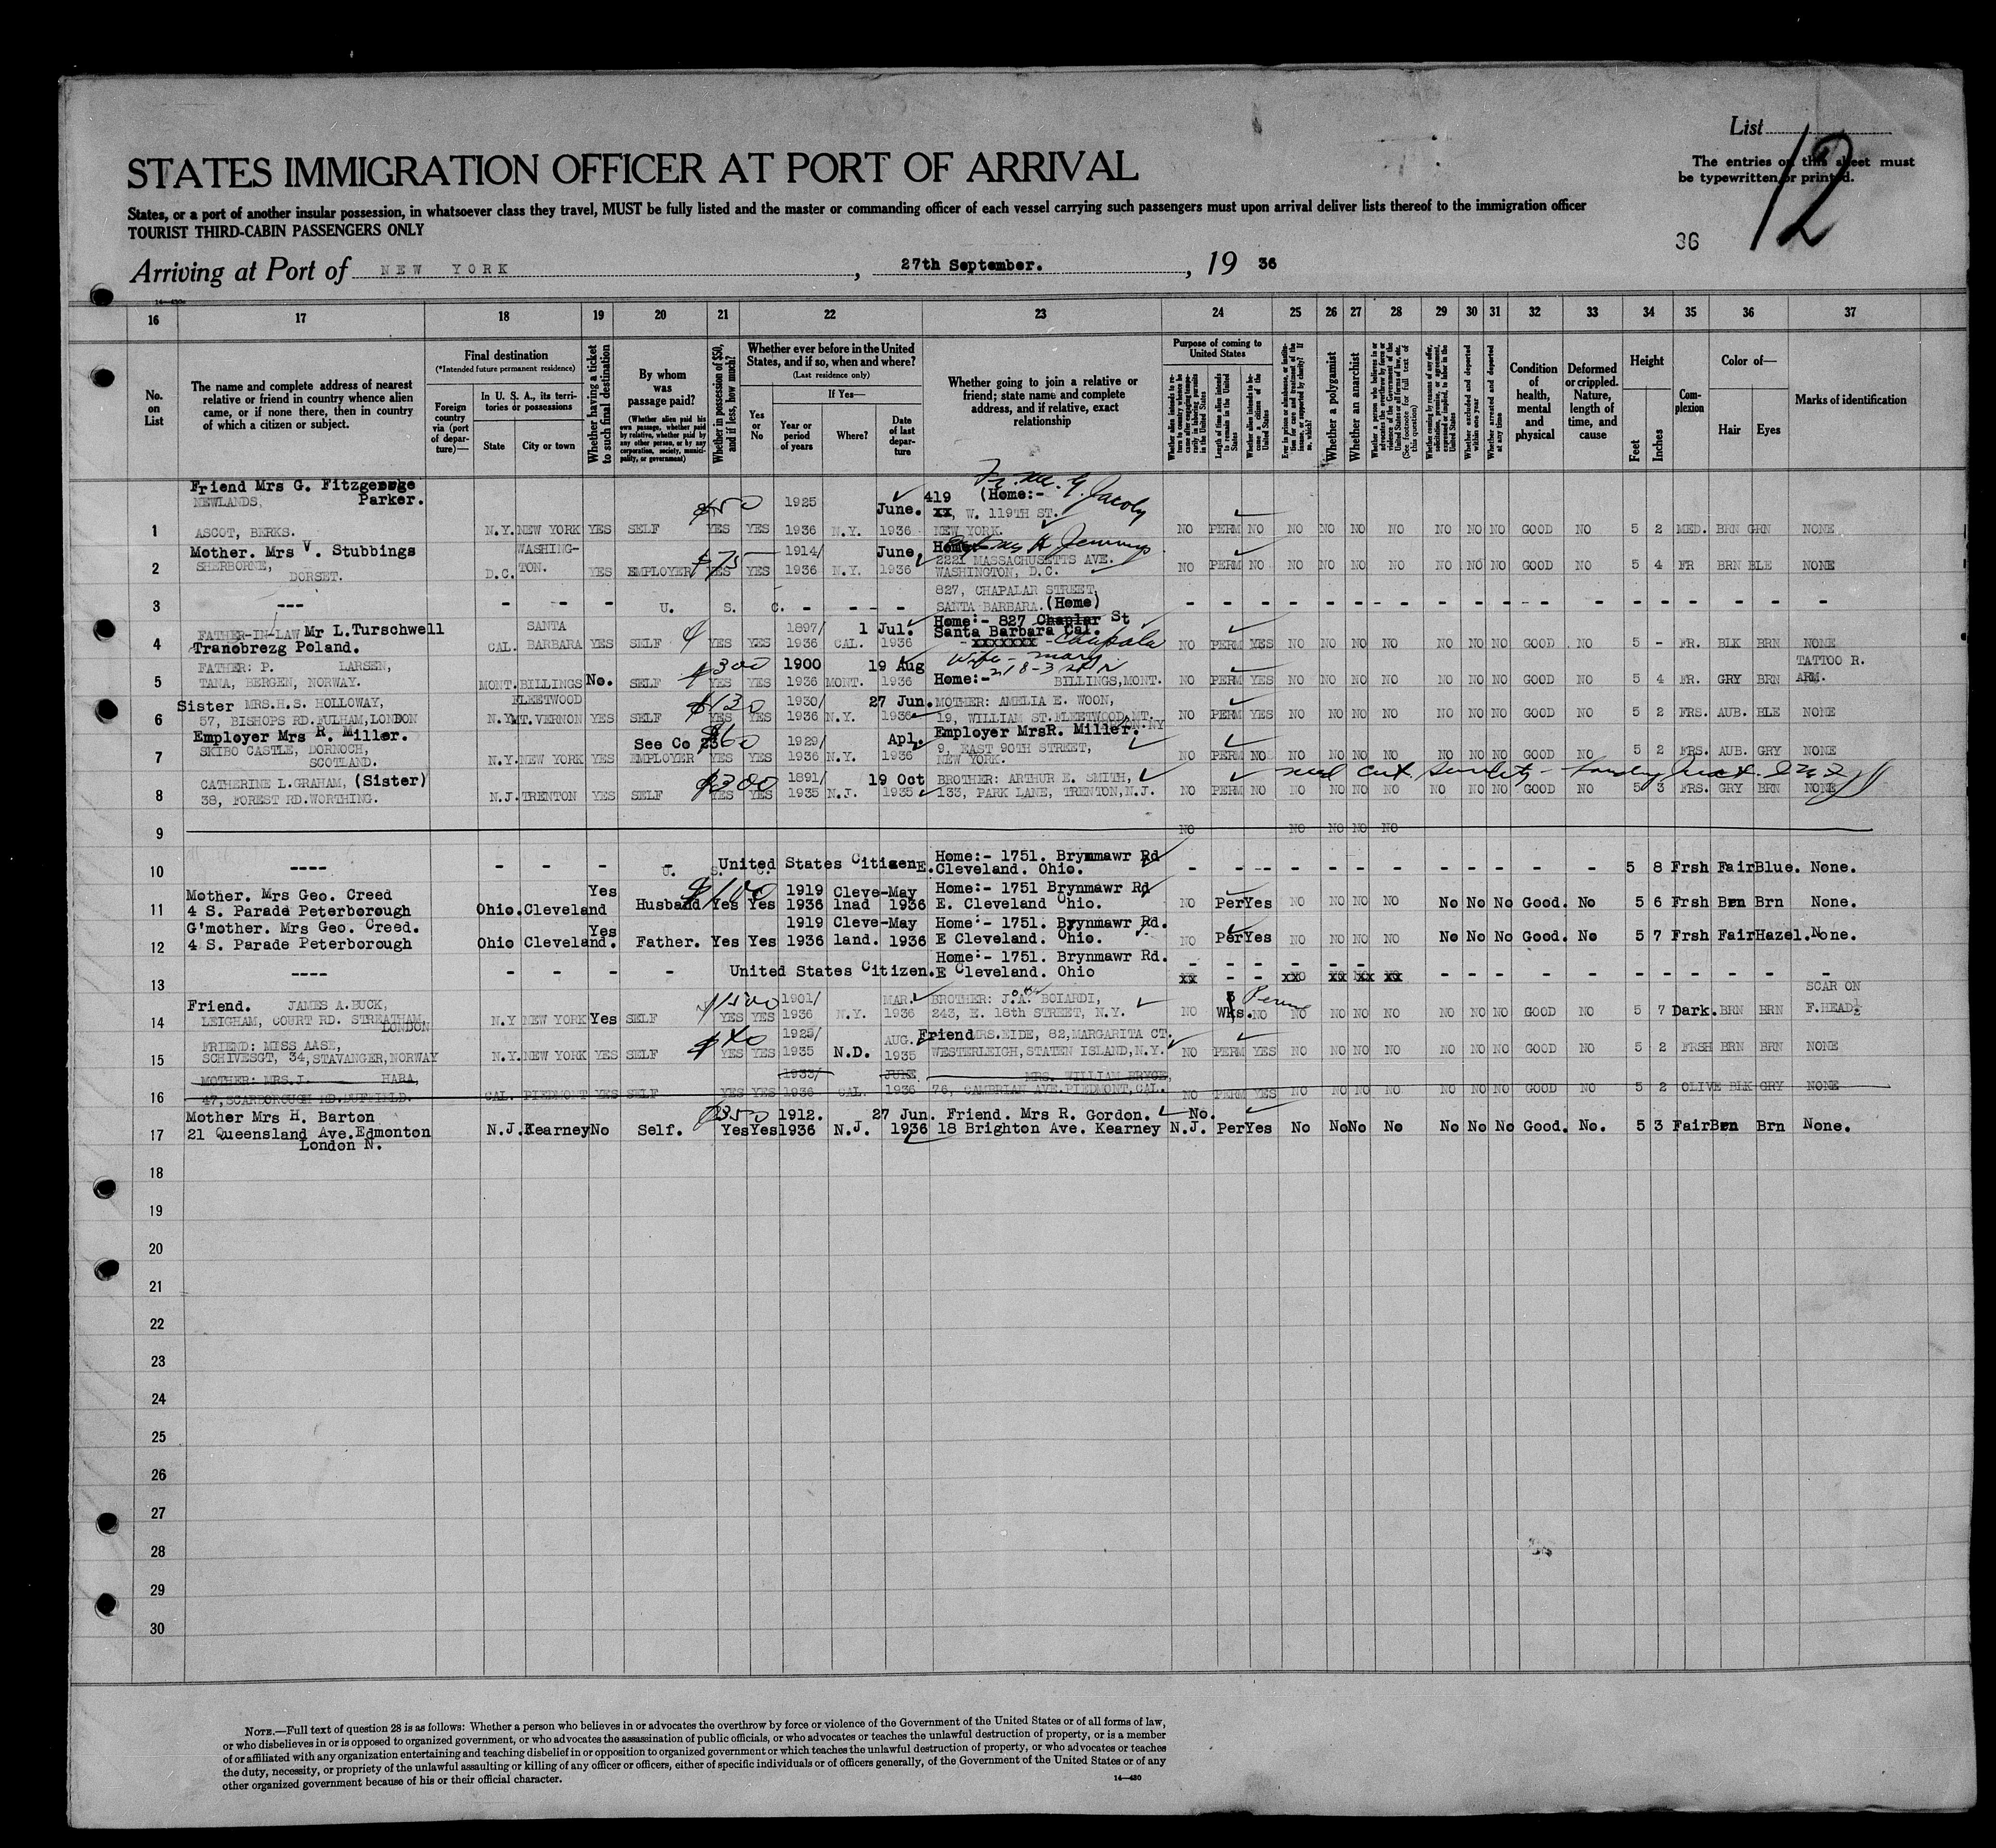 List
12
The entries on this sheet must
be typewritten or printed.
STATES IMMIGRATION OFFICER AT PORT OF ARRIVAL
States, or a port of another insular possession, in whatsoever class they travel, MUST be fully listed and the master or commanding officer of each vessel carrying such passengers must upon arrival deliver lists thereof to the immigration officer
TOURIST THIRD-CABIN PASSENGERS ONLY
36
Arriving at Port of NEW YORK, 27th September., 19 36
14—430
16 17 18 19 20 21 22 23 24 25 26 27 28 29 30 31 32 33 34 35 36 37
No. on List
The name and complete address of nearest relative or friend in country whence alien came, or if none there, then in country of which a citizen or subject.
Final destination
(*Intended future permanent residence)
Foreign country via (port of departure)—
In U. S. A., its territories or possessions
State
City or town
Whether having a ticket to such final destination
By whom was passage paid?
(Whether alien paid his own passage, whether paid by relative, whether paid by any other person, or by any corporation, society, municipality, or government)
Whether in possession of $50, and if less, how much?
Whether ever before in the United States, and if so, when and where?
(Last residence only)
Yes or No
If Yes—
Year or period of years
Where?
Date of last departure
Whether going to join a relative or friend; state name and complete address, and if relative, exact relationship
Purpose of coming to United States
Whether alien intends to return to country whence he came after engaging temporarily in laboring pursuits in the United States
Length of time alien intends to remain in the United States
Whether alien intends to become a citizen of the United States
Ever in prison or almshouse, or institution for care and treatment of the insane, or supported by charity? If so, which?
Whether a polygamist
Whether an anarchist
Whether a person who believes in or advocates the overthrow by force or violence of the Government of the United States or all forms of law, etc. (See footnote for full text of this question)
Whether coming by reason of any offer, solicitation, promise, or agreement, expressed or implied, to labor in the United States
Whether excluded and deported within one year
Whether arrested and deported at any time
Condition of health, mental and physical
Deformed or crippled. Nature, length of time, and cause
Height
Feet
Inches
Complexion
Color of—
Hair
Eyes
Marks of identification
Friend Mrs G. Fitzgeorge
NEWLANDS, Parker. $50 1925 June. 419 (Home:- Fr. Mr. G. Jacoby
xx, W. 119TH ST.
1 ASCOT, BERKS. N.Y. NEW YORK YES SELF YES YES 1936 N.Y. 1936 NEW YORK. NO PERM NO NO NO NO NO NO NO NO GOOD NO 5 2 MED. BRN GRN NONE
Mother. Mrs V. Stubbings WASHING- $75 1914/ June, Home Mrs H Jennings
2 SHERBORNE, TON. 2221 MASSACHUSETTS AVE.
DORSET. D.C. YES EMPLOYER YES YES 1936 N.Y. 1936 WASHINGTON, D.C. NO PERM NO NO NO NO NO NO NO NO GOOD NO 5 4 FR BRN BLE NONE
827, CHAPALAR STREET,
3 --- - - - U. S. C. - - - - SANTA BARBARA. (Home) - - - - - - - - - - - - - - - - - -
Home:- 827 Chaplar St
FATHER-IN-LAW Mr L.Turschwell SANTA 1897/ 1 Jul. Santa Barbara Cal.
4 Tranobrezg Poland. CAL. BARBARA YES SELF YES YES 1936 CAL. 1936 - xxxxxxx - Chapala NO PERM YES NO NO NO NO NO NO NO GOOD NO 5 - FR. BLK BRN NONE
FATHER: P. LARSEN, $300 1900 19 Aug Wife - Mary 218-3 St N TATTOO R.
5 TANA, BERGEN, NORWAY. MONT. BILLINGS No. SELF YES YES 1936 MONT. 1936 Home:- BILLINGS, MONT. NO PERM YES NO NO NO NO NO NO NO GOOD NO 5 4 FR. GRY BRN ARM.
Sister MRS.H.S. HOLLOWAY, FLEETWOOD $130 1930/ 27 Jun. MOTHER: AMELIA E. WOON,
6 57, BISHOPS RD.FULHAM,LONDON N.Y. MT. VERNON YES SELF YES YES 1936 N.Y. 1936 19, WILLIAM ST.FLEETWOOD, MT. NO PERM YES NO NO NO NO NO NO NO GOOD NO 5 2 FRS. AUB. BLE NONE
Employer Mrs R. Miller. See Co 23 $60 1929/ Apl. Employer MrsR. Miller.
7 SKIBO CASTLE, DORNOCH, 9, EAST 90TH STREET,
SCOTLAND. N.Y. NEW YORK YES EMPLOYER YES YES 1936 N.Y. 1936 NEW YORK. NO PERM NO NO NO NO NO NO NO NO GOOD NO 5 2 FRS. AUB. GRY NONE
CATHERINE L.GRAHAM, (Sister) $300 1891/ 19 Oct BROTHER: ARTHUR E. SMITH, med Cert. Senility -
8 38, FOREST RD.WORTHING. N.J. TRENTON YES SELF YES YES 1935 N.J. 1935 133, PARK LANE, TRENTON, N.J. NO PERM NO NO NO NO NO NO NO NO GOOD NO 5 3 FRS. GRY BRN NONE
9 NO NO NO NO NO
10 ---- - - - - U. S. C. United States Citizen. Home:- 1751. Brynmawr Rd
E. Cleveland. Ohio. - - - - - - - - - - - - 5 8 Frsh Fair Blue. None.
Mother. Mrs Geo. Creed Yes $100 1919 Cleve- May Home:- 1751 Brynmawr Rd
11 4 S. Parade Peterborough Ohio. Cleveland Husband Yes Yes 1936 lnad 1936 E. Cleveland Ohio. NO Per Yes NO NO NO NO No No No Good. No 5 6 Frsh Brn Brn None.
G'mother. Mrs Geo. Creed. Yes 1919 Cleve- May Home:- 1751. Brynmawr Rd.
12 4 S. Parade Peterborough Ohio Cleveland. Father. Yes Yes 1936 land. 1936 E Cleveland. Ohio. NO Per Yes NO NO NO NO No No No Good. No 5 7 Frsh Fair Hazel. None.
Home:- 1751. Brynmawr Rd.
13 ---- - - - - United States Citizen. E Cleveland. Ohio xx - - xxO xx xx xx - - - - - - - - - - -
Friend. JAMES A.BUCK, $1500 1901/ MAR. BROTHER: J.A. BOIARDI, 3 Perm SCAR ON
14 LEIGHAM, COURT RD. STREATHAM, LONDON N.Y NEW YORK Yes SELF YES YES 1936 N.Y. 1936 243, E. 18th STREET, N.Y. NO Wks. NO NO NO NO NO NO NO NO GOOD NO 5 7 Dark. BRN BRN F.HEAD
FRIEND: MISS AASE, $40 1925/ AUG. Friend MRS.EIDE, 82,MARGARITA CT.
15 SCHIVESGT, 34,STAVANGER,NORWAY N.Y. NEW YORK YES SELF YES YES 1935 N.D. 1935 WESTERLEIGH, STATEN ISLAND, N.Y. NO PERM YES NO NO NO NO NO NO NO GOOD NO 5 2 FRSH BRN BRN NONE
MOTHER: MRS.J. HARA, 1933/ JUNE MRS. WILLIAM BRYCE,
16 47, SCARBOROUGH RD. CAL. PIEDMONT YES SELF YES YES 1936 CAL. 1936 76, CAMBRIAN AVE.PIEDMONT,CAL. NO PERM YES NO NO NO NO NO NO NO GOOD NO 5 2 OLIVE BLK GRY NONE
Mother Mrs H. Barton $350 1912. 27 Jun. Friend. Mrs R. Gordon. No.
17 21 Queensland Ave.Edmonton N.J. Kearney No Self. Yes Yes 1936 N.J. 1936 18 Brighton Ave. Kearney N.J. Per Yes No No No No No No No Good. No. 5 3 Fair Brn Brn None.
London N.
18
19
20
21
22
23
24
25
26
27
28
29
30
NOTE.—Full text of question 28 is as follows: Whether a person who believes in or advocates the overthrow by force or violence of the Government of the United States or of all forms of law,
or who disbelieves in or is opposed to organized government, or who advocates the assassination of public officials, or who advocates or teaches the unlawful destruction of property, or is a member
of or affiliated with any organization entertaining and teaching disbelief in or opposition to organized government or which teaches the unlawful destruction of property, or who advocates or teaches
the duty, necessity, or propriety of the unlawful assaulting or killing of any officer or officers, either of specific individuals or of officers generally, of the Government of the United States or of any
other organized government because of his or their official character.
14—430